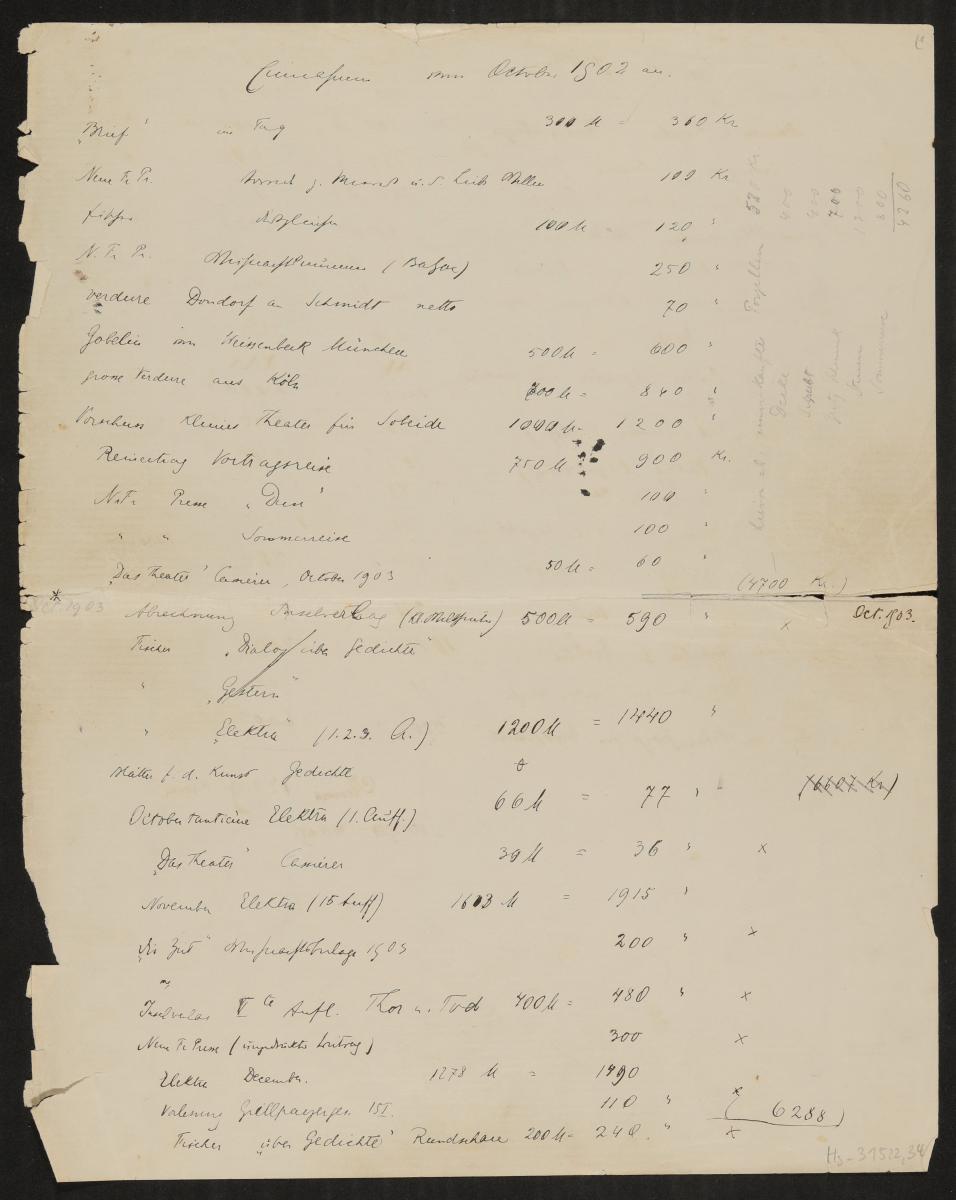 Einnahmen vom October 1902 an.
"Brief" im Tag 300 M = 360 Kr
Neue Fr Pr. 109 Kr
Fischer 100 M = 120 "
N. Fr Pr. (Balzac) 250 "
Verdure Dondorf an Schmidt netto 70 "
Gobelin von Weissenbeck München 500 M = 600 "
grosse Verdure aus Köln 700 M = 840 "
Vorschuss Kleines Theater für Sobeide 1000 M = 1200 "
Reinertrag Vortragsreise 750 M = 900 Kr.
N. Fr Presse "Duse" 100 "
" " Sommerreise 100 "
"Das Theater" Cassirer, October 1903 50 M = 60 "
(4700 Kr.)
* Oct 1903
Abrechnung Inselverlag (Kl. Welttheater) 500 M = 590 " x Oct. 1903.
Fischer "Dialog über Gedichte"
" "Gestern"
" "Elektra" (1.2.3. A.) 1200 M = 1440 "
Blätter f. d. Kunst Gedichte
Octobertantieme Elektra (1. Auff.) 66 M = 77 " (6607 Kr)
"Das Theater" Cassirer 30 M = 36 " x
November Elektra (15 Auff) 1603 M = 1915 "
"Die Zeit" Weihnachtsbeilage 1903 200 " x
Inselverlag V te Aufl. Thor u. Tod 400 M = 480 " x
Neue Fr Presse (ungedruckter Vortrag) 300 x
Elektra December. 1278 M = 1490
Vorlesung Grillparzerges 15 I. 110 " x (6288)
Fischer "über Gedichte" Rundschau 200 M = 240. " x
Porzellan 520 Kr
Decke 400
400
700
1200
Sommer 800
4260
Hs-31522,34